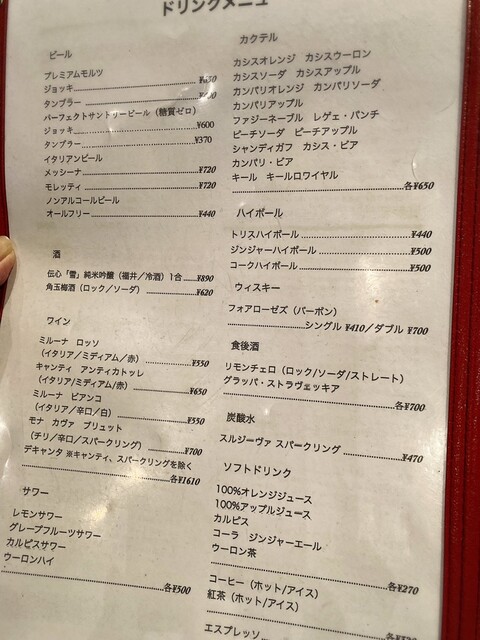 ドリンクメニュー
ビール
プレミアムモルツ
ジョッキ
タンブラー
パーフェクトサントリービール（糖質ゼロ）
ジョッキ ¥600
タンブラー ¥370
イタリアンビール
メッシーナ ¥720
モレッティ ¥720
ノンアルコールビール
オールフリー ¥440
酒
伝心「雪」純米吟醸（福井／冷酒）1合 ¥890
角玉梅酒（ロック／ソーダ） ¥620
ワイン
ミルーナ ロッソ
（イタリア／ミディアム／赤） ¥550
キャンティ アンティカトッレ
（イタリア/ミディアム/赤） ¥650
ミルーナ ビアンコ
（イタリア／辛口／白） ¥550
モナ カヴァ ブリュット
（チリ／辛口／スパークリング） ¥700
デキャンタ ※キャンティ、スパークリングを除く
各¥1610
サワー
レモンサワー
グレープフルーツサワー
カルピスサワー
ウーロンハイ
各¥500
カクテル
カシスオレンジ カシスウーロン
カシスソーダ カシスアップル
カンパリオレンジ カンパリソーダ
カンパリアップル
ファジーネーブル レゲェ・パンチ
ピーチソーダ ピーチアップル
シャンディガフ カシス・ビア
カンパリ・ビア
キール キールロワイヤル
各¥650
ハイボール
トリスハイボール ¥440
ジンジャーハイボール ¥500
コークハイボール ¥500
ウィスキー
フォアローゼズ（バーボン）
シングル ¥410／ダブル ¥700
食後酒
リモンチェロ（ロック/ソーダ/ストレート）
グラッパ・ストラヴェッキア
各¥700
炭酸水
スルジーヴァ スパークリング ¥470
ソフトドリンク
100%オレンジジュース
100%アップルジュース
カルピス
コーラ ジンジャーエール
ウーロン茶
各¥270
コーヒー（ホット/アイス）
紅茶（ホット/アイス）
エスプレッソ